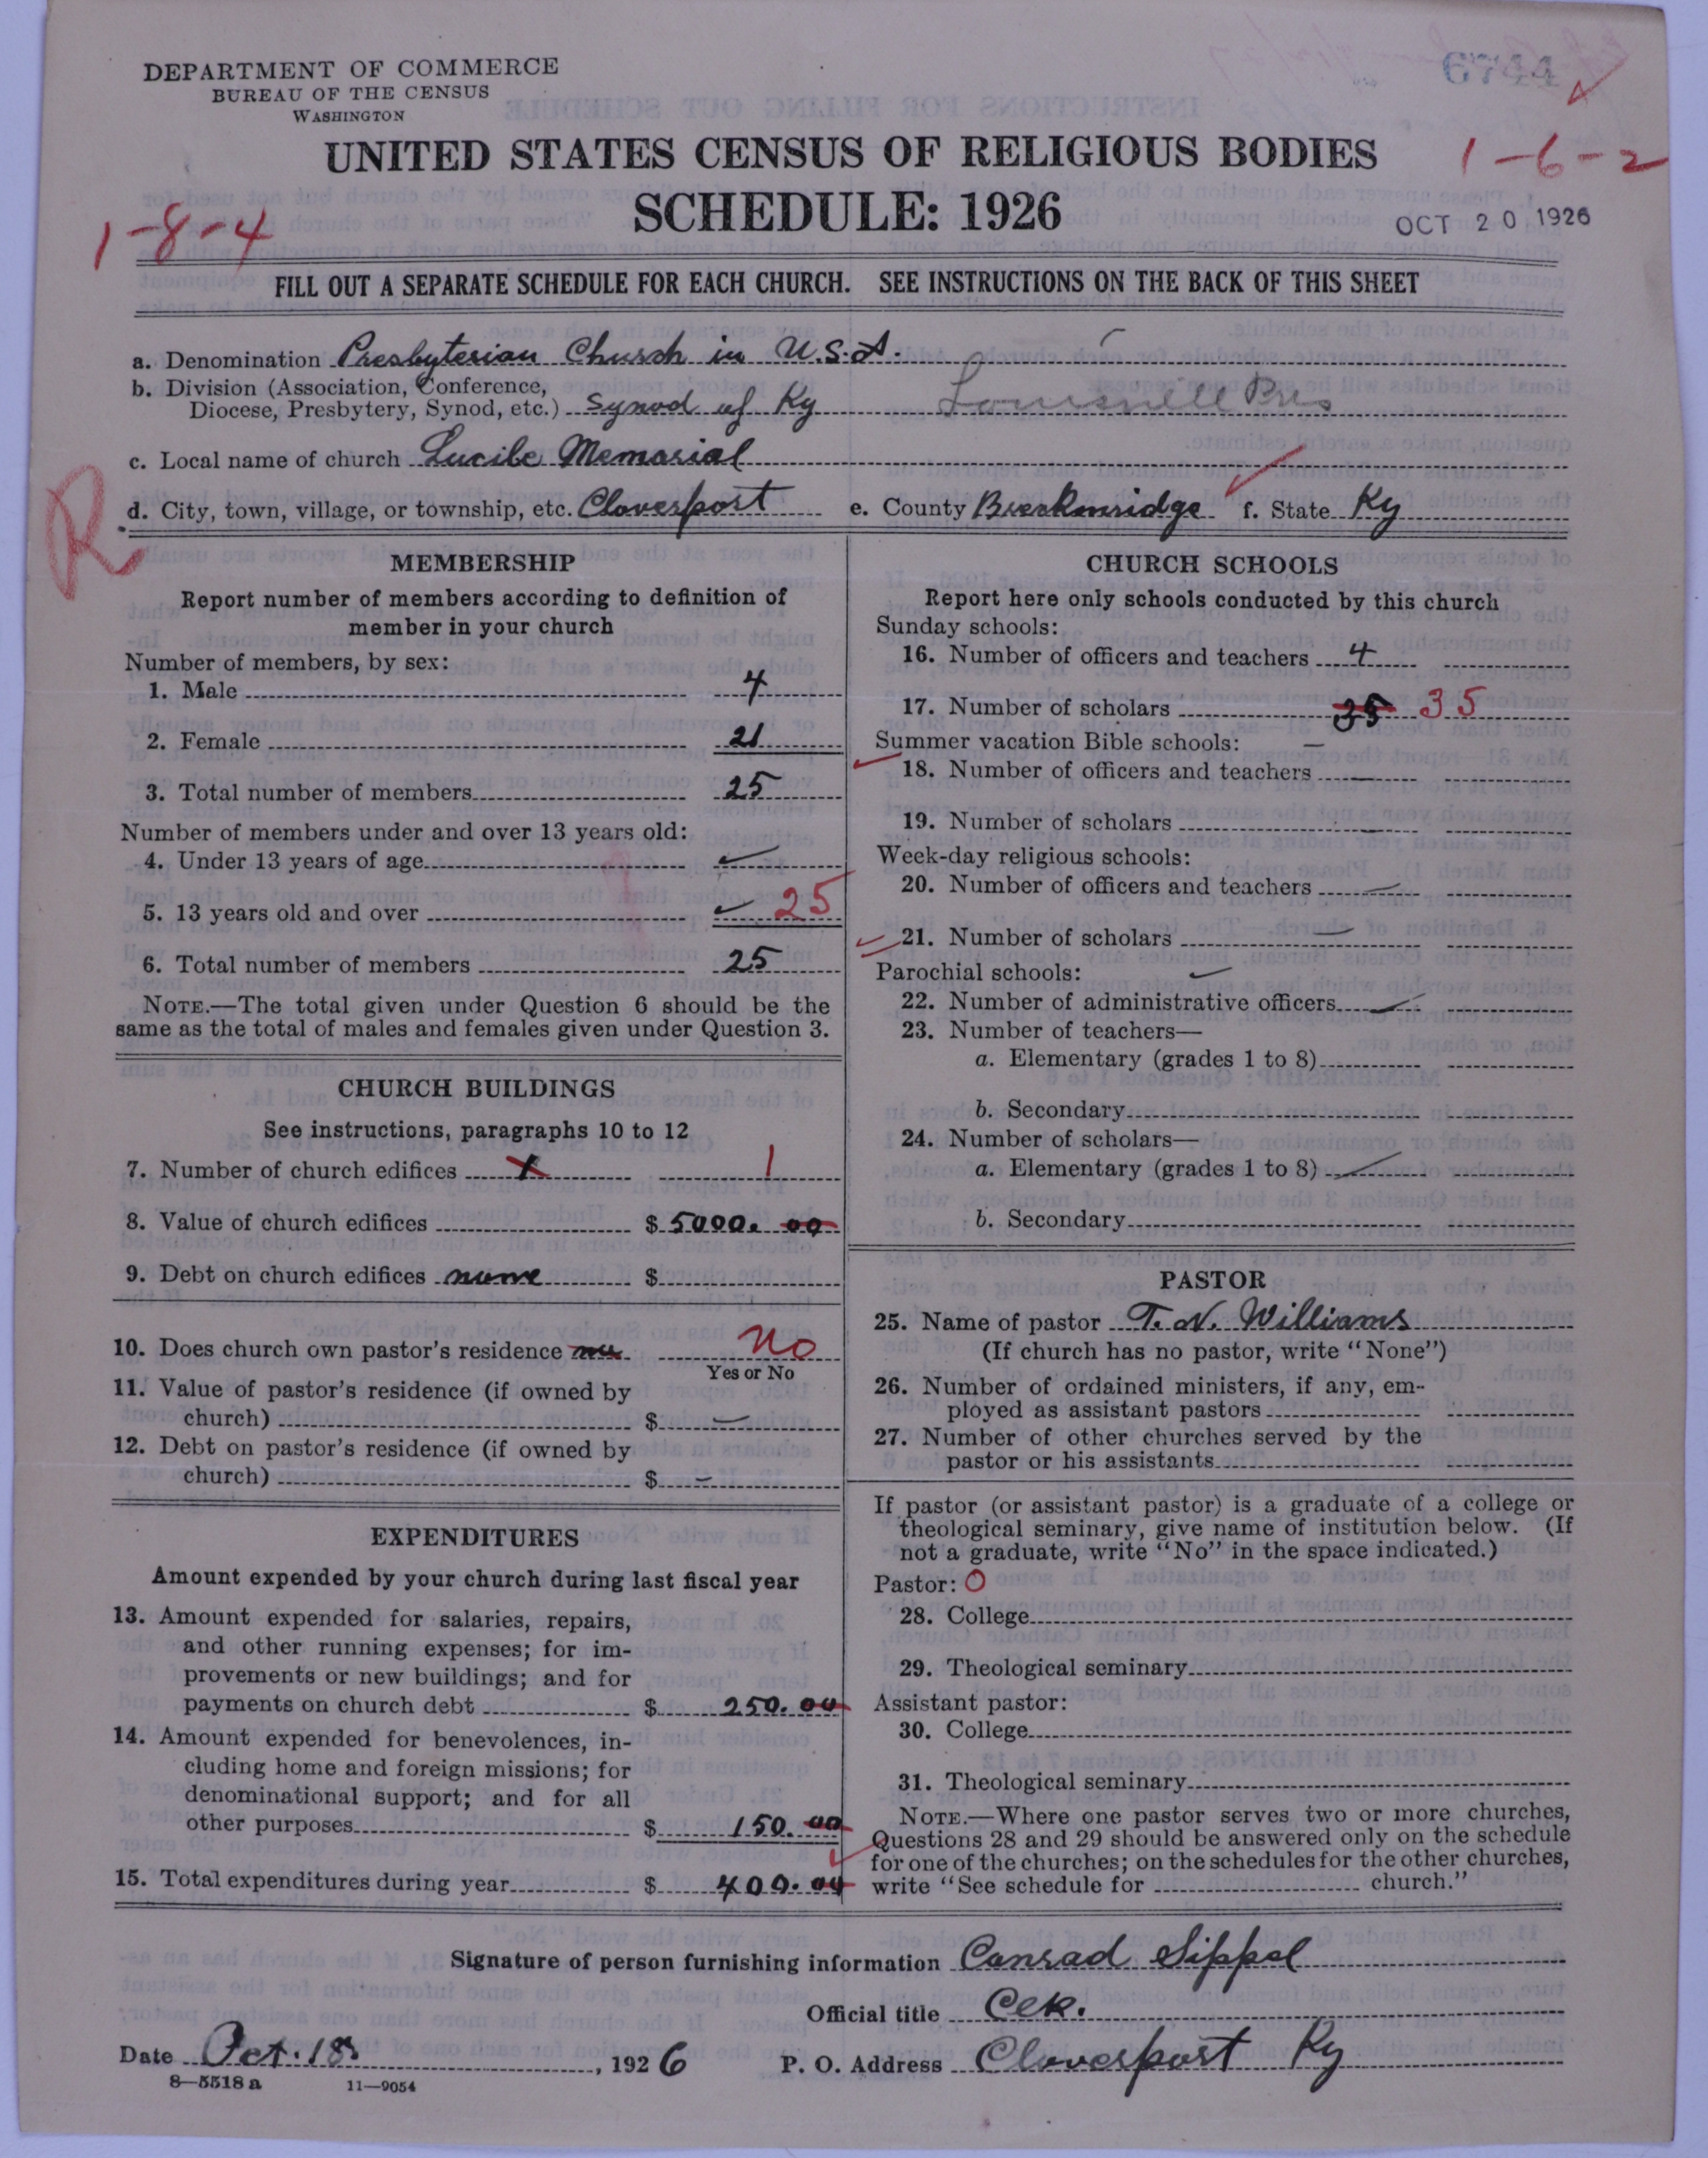 6744
DEPARTMENT OF COMMERCE
BUREAU OF THE CENSUS
WASHINGTON
UNITED STATES CENSUS OF RELIGIOUS BODIES
1-6-2
SCHEDULE: 1926
OCT 20 1926
1-8-4
FILL OUT A SEPARATE SCHEDULE FOR EACH CHURCH. SEE INSTRUCTIONS ON THE BACK OF THIS SHEET
a. Denomination Presbyterian Church in U.S.A.
b. Division (Association, Conference,
Diocese, Presbytery, Synod, etc.) Synod of Ky Louisville Pres
c. Local name of church Lucile Memorial
R
d. City, town, village, or township, etc. Cloverport e. County Breckenridge f. State Ky
MEMBERSHIP
Report number of members according to definition of
member in your church
Number of members, by sex:
1. Male 4
2. Female 21
3. Total number of members 25
Number of members under and over 13 years old:
4. Under 13 years of age
5. 13 years old and over 25
6. Total number of members 25
NOTE.—The total given under Question 6 should be the
same as the total of males and females given under Question 3.
CHURCH BUILDINGS
See instructions, paragraphs 10 to 12
7. Number of church edifices 1 1
8. Value of church edifices $ 5000.00
9. Debt on church edifices none $
10. Does church own pastor's residence no No
Yes or No
11. Value of pastor's residence (if owned by
church) $ —
12. Debt on pastor's residence (if owned by
church) $ —
EXPENDITURES
Amount expended by your church during last fiscal year
13. Amount expended for salaries, repairs,
and other running expenses; for im-
provements or new buildings; and for
payments on church debt $ 250.00
14. Amount expended for benevolences, in-
cluding home and foreign missions; for
denominational support; and for all
other purposes $ 150.00
15. Total expenditures during year $ 400.00
CHURCH SCHOOLS
Report here only schools conducted by this church
Sunday schools:
16. Number of officers and teachers 4
17. Number of scholars 35 35
Summer vacation Bible schools: —
18. Number of officers and teachers —
19. Number of scholars
Week-day religious schools:
20. Number of officers and teachers —
21. Number of scholars —
Parochial schools:
22. Number of administrative officers
23. Number of teachers—
a. Elementary (grades 1 to 8)
b. Secondary
24. Number of scholars—
a. Elementary (grades 1 to 8)
b. Secondary
PASTOR
25. Name of pastor T. N. Williams
(If church has no pastor, write "None")
26. Number of ordained ministers, if any, em-
ployed as assistant pastors
27. Number of other churches served by the
pastor or his assistants
If pastor (or assistant pastor) is a graduate of a college or
theological seminary, give name of institution below. (If
not a graduate, write "No" in the space indicated.)
Pastor: O
28. College
29. Theological seminary
Assistant pastor:
30. College
31. Theological seminary
NOTE.—Where one pastor serves two or more churches,
Questions 28 and 29 should be answered only on the schedule
for one of the churches; on the schedules for the other churches,
write "See schedule for church."
Signature of person furnishing information Conrad Sippel
Official title Clk.
Date Oct. 18, 1926 P. O. Address Cloverport Ky
8—5518 a 11—9054